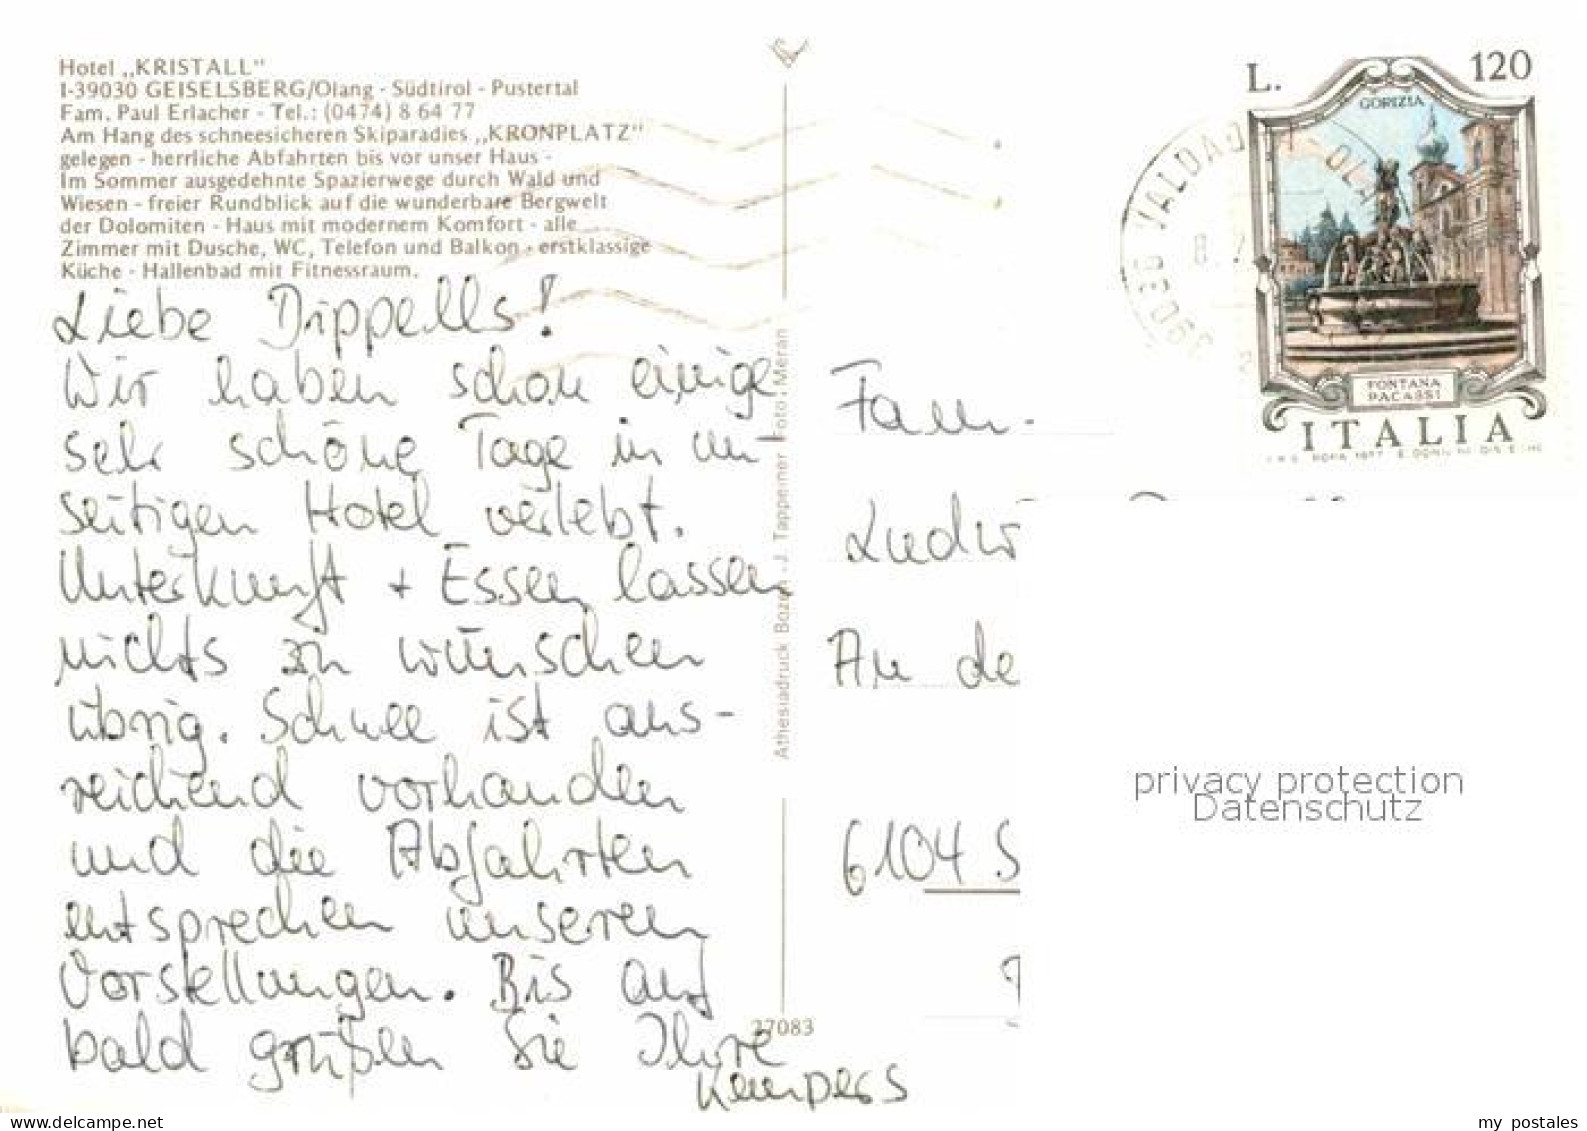 Hotel „KRISTALL"
I-39030 GEISELSBERG/Olang - Südtirol - Pustertal
Fam. Paul Erlacher - Tel.: (0474) 8 64 77
Am Hang des schneesicheren Skiparadies „KRONPLATZ"
gelegen - herrliche Abfahrten bis vor unser Haus -
Im Sommer ausgedehnte Spazierwege durch Wald und
Wiesen - freier Rundblick auf die wunderbare Bergwelt
der Dolomiten - Haus mit modernem Komfort - alle
Zimmer mit Dusche, WC, Telefon und Balkon - erstklassige
Küche - Hallenbad mit Fitnessraum.
Liebe Dippells!
Wir haben schon einige
sehr schöne Tage in un-
seitigen Hotel verlebt.
Unterkunft + Essen lassen
nichts zu wünschen
übrig. Schnee ist aus-
reichend vorhanden
und die Abfahrten
entsprechen unseren
Vorstellungen. Bis auf
bald grüßen Sie Ihre
Kempers
Athesiadruck Bozen - J. Tappeiner Foto, Meran
27083
L. 120
GORIZIA
FONTANA
PACASSI
ITALIA
39030 VALDAORA - OLA
Fam.
Ludwi
An de
6104 S
privacy protection
Datenschutz
www.delcampe.net
my_postales